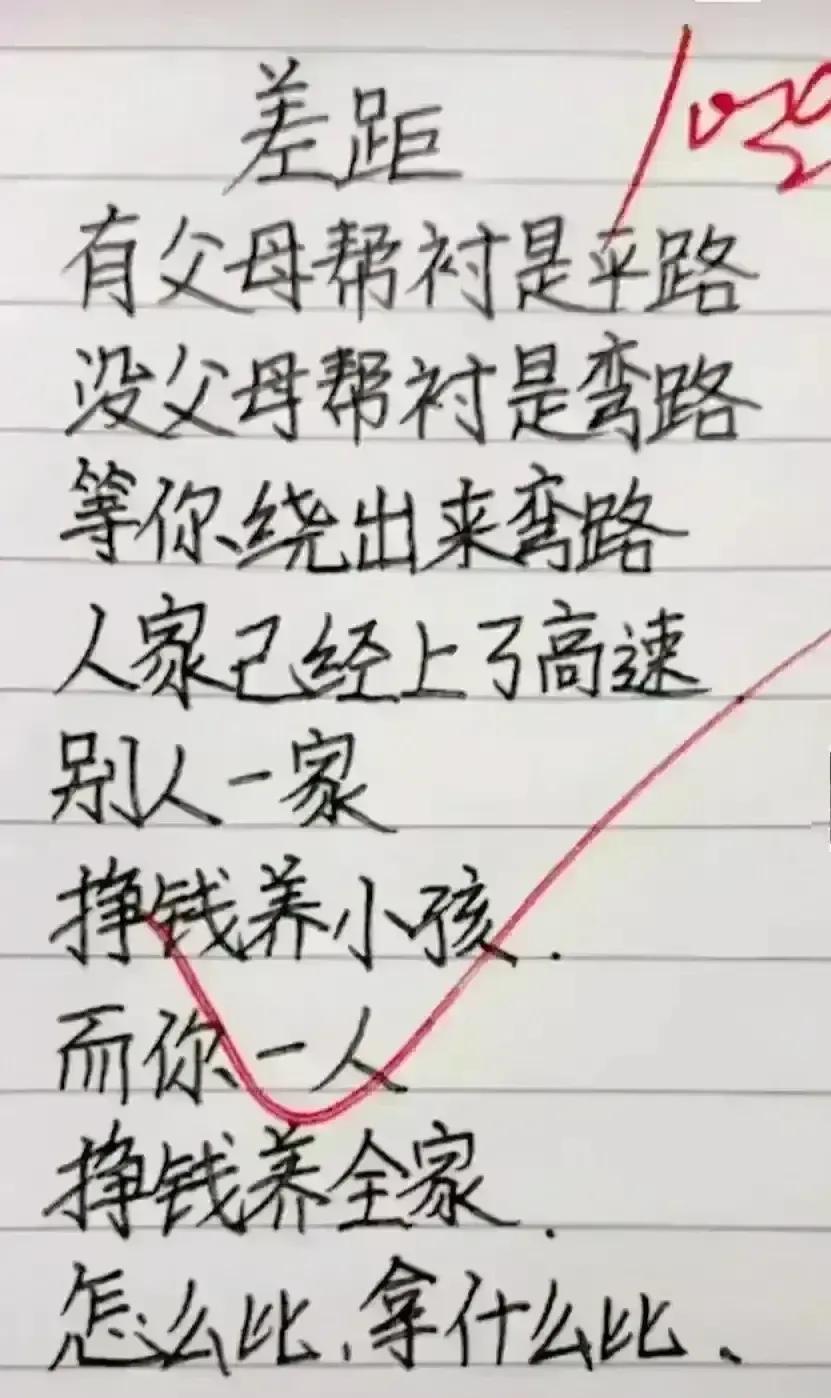 差距
有父母帮衬是平路
没父母帮衬是弯路
等你绕出来弯路
人家已经上了高速
别人一家
挣钱养小孩.
而你一人
挣钱养全家.
怎么比,拿什么比、